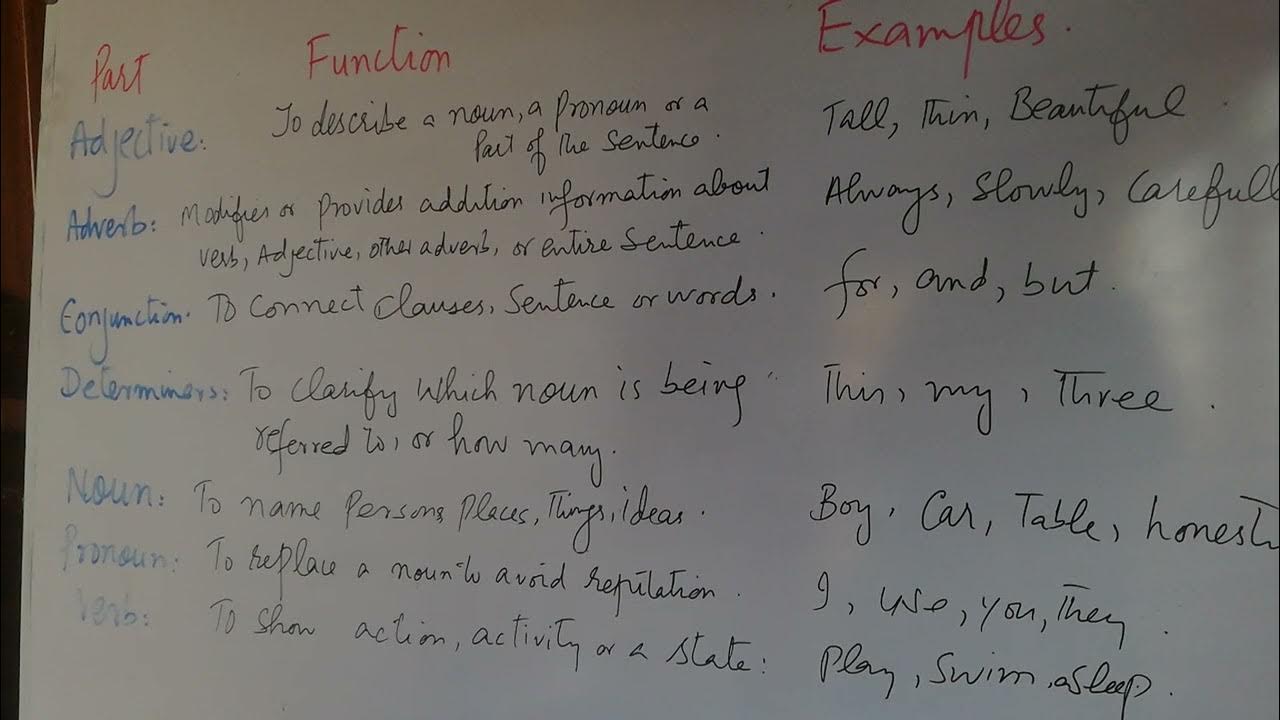 Part Function Examples.
Adjective: To describe a noun, a pronoun or a Tall, Thin, Beautiful
Part of the Sentence.
Adverb: Modifies or provides addition information about Always, Slowly, Carefull
verb, Adjective, other adverb, or entire Sentence.
Conjunction. To Connect Clauses, Sentence or words. for, and, but.
Determiners: To Clarify which noun is being This, my, Three.
referred to, or how many.
Noun: To name Persons, Places, Things, ideas. Boy, Car, Table, honest
Pronoun: To replace a noun to avoid reputation. I, you, They.
Verb: To show action, activity or a State: Play, Swim, asleep.